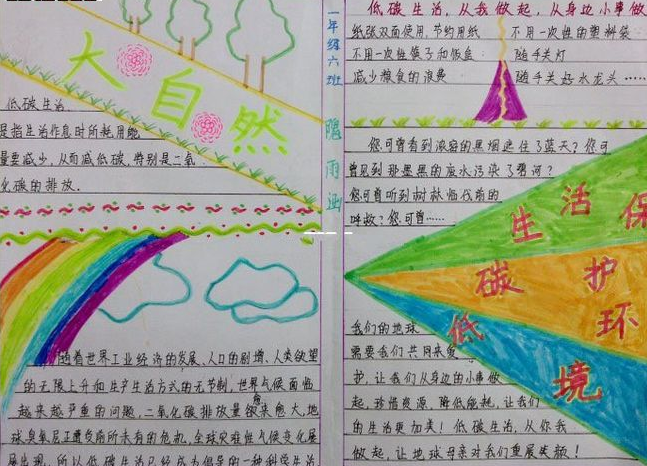 大自然
低碳生活
是指生活作息时所耗用能
量要减少，从而减低碳，特别是二氧
化碳的排放.
随着世界工业经济的发展、人口的剧增、人类欲望
的无限上升和生产生活方式的无节制，世界气候面临
越来越严重的问题，二氧化碳排放量愈来愈大，地
球臭氧层正遭受前所未有的危机，全球灾难性气候变化屡
屡出现，所以低碳生活已经成为倡导的一种科学生活
一年级六班
雨涵
低碳生活，从我做起，从身边小事做
纸张双面使用，节约用纸
不用一次性的塑料袋
不用一次性筷子和饭盒
随手关灯
减少粮食的浪费
随手关好水龙头……
您可曾看到浓密的黑烟遮住了蓝天？您可
曾见到那墨黑的废水污染了碧河？
您可曾听到树林临伐前的
呼救？您可曾……
生活保
低碳护环
境
我们的地球
需要我们共同来爱
护，让我们从身边的小事做
起，珍惜资源，降低能耗，让我们
的生活更加美！低碳生活，从你我
做起，让地球母亲对我们重展笑颜！